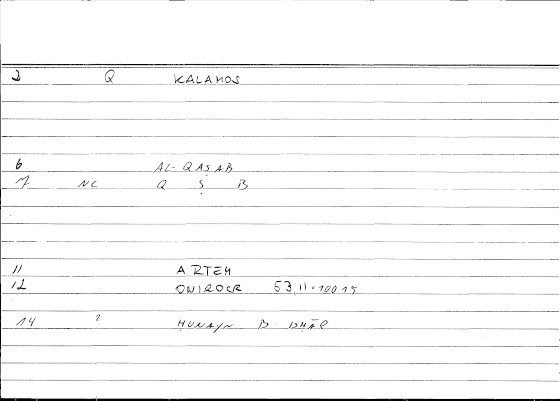 2 Q KALAMOS
6 AL-QAṢAB
7 NC Q Ṣ B
11 ARTEM
12 ONIROCR 53,11-100 15
14 ? HUNAYN B. ISHĀQ